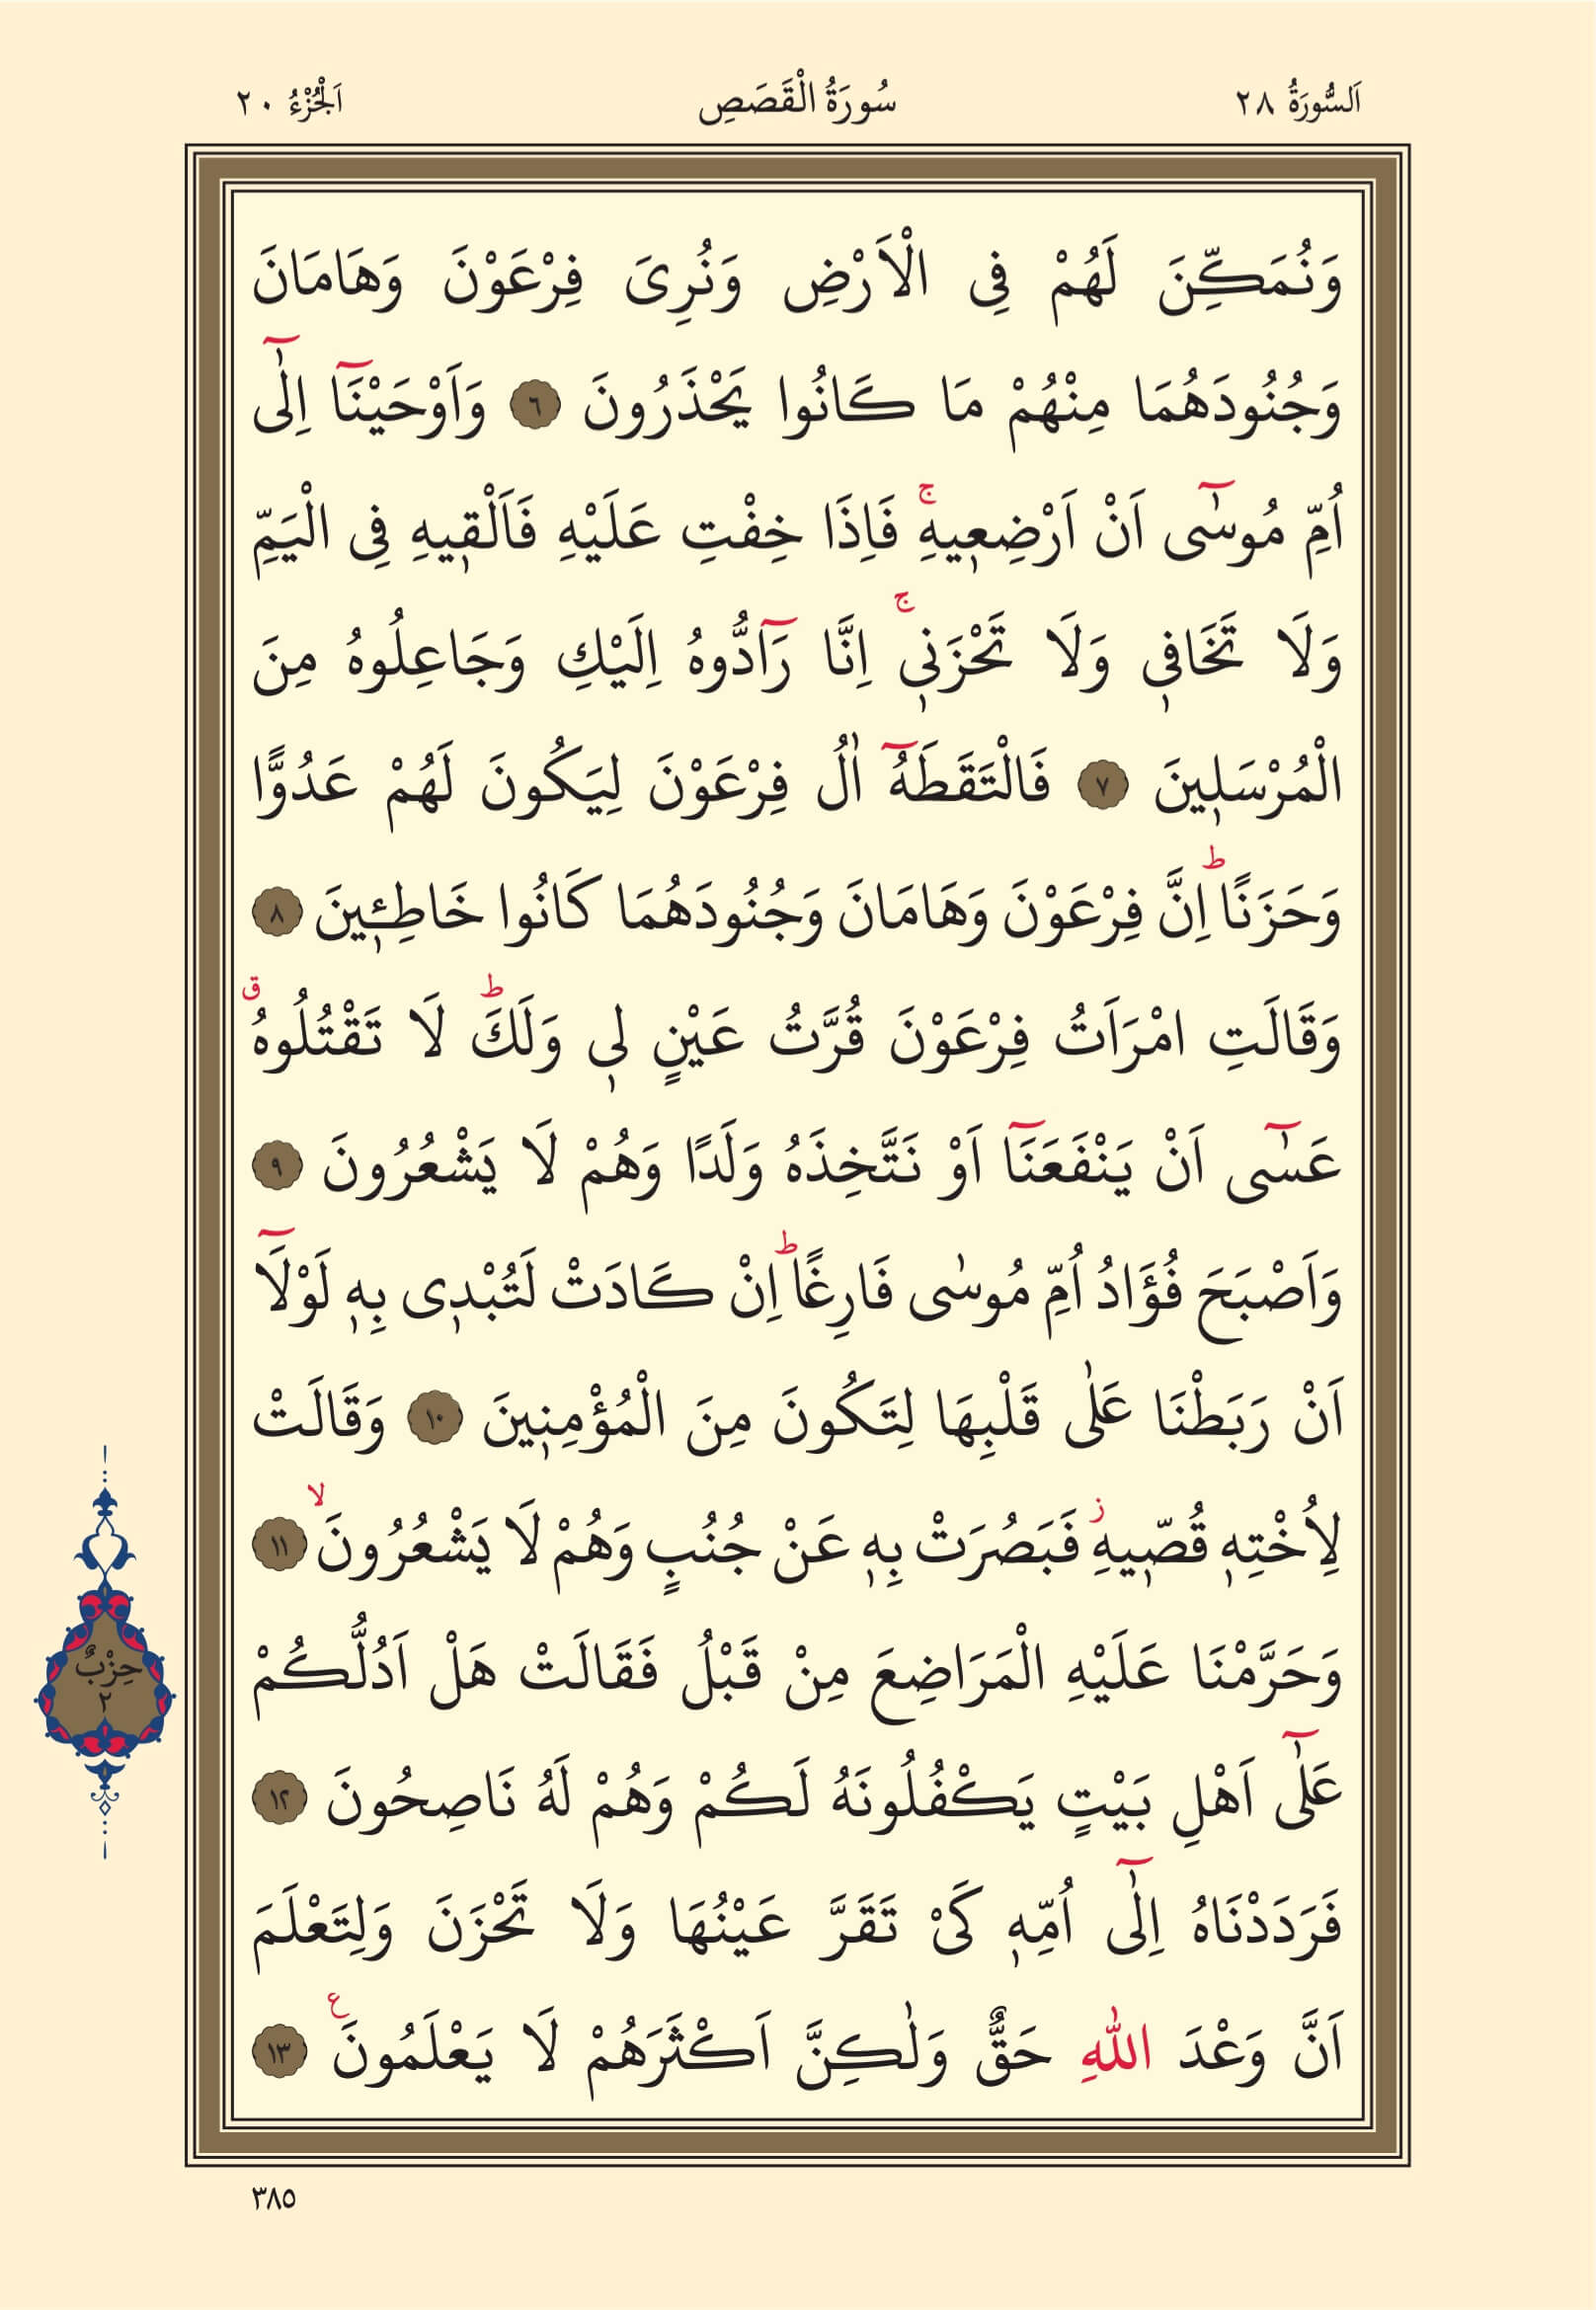 اَلسُّورَةُ ٢٨ سُورَةُ الْقَصَصِ اَلْجُزْءُ ٢٠
وَنُمَكِّنَ لَهُمْ فِى الْاَرْضِ وَنُرِىَ فِرْعَوْنَ وَهَامَانَ
وَجُنُودَهُمَا مِنْهُمْ مَا كَانُوا يَحْذَرُونَ ٦ وَاَوْحَيْنَآ اِلٰٓى
اُمِّ مُوسٰٓى اَنْ اَرْضِعٖيهِۚ فَاِذَا خِفْتِ عَلَيْهِ فَاَلْقٖيهِ فِى الْيَمِّ
وَلَا تَخَافٖى وَلَا تَحْزَنٖىۚ اِنَّا رَآدُّوهُ اِلَيْكِ وَجَاعِلُوهُ مِنَ
الْمُرْسَلٖينَ ٧ فَالْتَقَطَهُٓ اٰلُ فِرْعَوْنَ لِيَكُونَ لَهُمْ عَدُوًّا
وَحَزَنًاؕ اِنَّ فِرْعَوْنَ وَهَامَانَ وَجُنُودَهُمَا كَانُوا خَاطِـٖٔينَ ٨
وَقَالَتِ امْرَاَتُ فِرْعَوْنَ قُرَّتُ عَيْنٍ لٖى وَلَكَؕ لَا تَقْتُلُوهُࣗ
عَسٰٓى اَنْ يَنْفَعَنَآ اَوْ نَتَّخِذَهُ وَلَدًا وَهُمْ لَا يَشْعُرُونَ ٩
وَاَصْبَحَ فُؤَادُ اُمِّ مُوسٰى فَارِغًاؕ اِنْ كَادَتْ لَتُبْدٖى بِهٖ لَوْلَآ
اَنْ رَبَطْنَا عَلٰى قَلْبِهَا لِتَكُونَ مِنَ الْمُؤْمِنٖينَ ١٠ وَقَالَتْ
لِاُخْتِهٖ قُصّٖيهِؗ فَبَصُرَتْ بِهٖ عَنْ جُنُبٍ وَهُمْ لَا يَشْعُرُونَۙ ١١
وَحَرَّمْنَا عَلَيْهِ الْمَرَاضِعَ مِنْ قَبْلُ فَقَالَتْ هَلْ اَدُلُّكُمْ
عَلٰٓى اَهْلِ بَيْتٍ يَكْفُلُونَهُ لَكُمْ وَهُمْ لَهُ نَاصِحُونَ ١٢
فَرَدَدْنَاهُ اِلٰٓى اُمِّهٖ كَىْ تَقَرَّ عَيْنُهَا وَلَا تَحْزَنَ وَلِتَعْلَمَ
اَنَّ وَعْدَ اللّٰهِ حَقٌّ وَلٰكِنَّ اَكْثَرَهُمْ لَا يَعْلَمُونَࣖ ١٣
حِزْبٌ
٢
٣٨٥